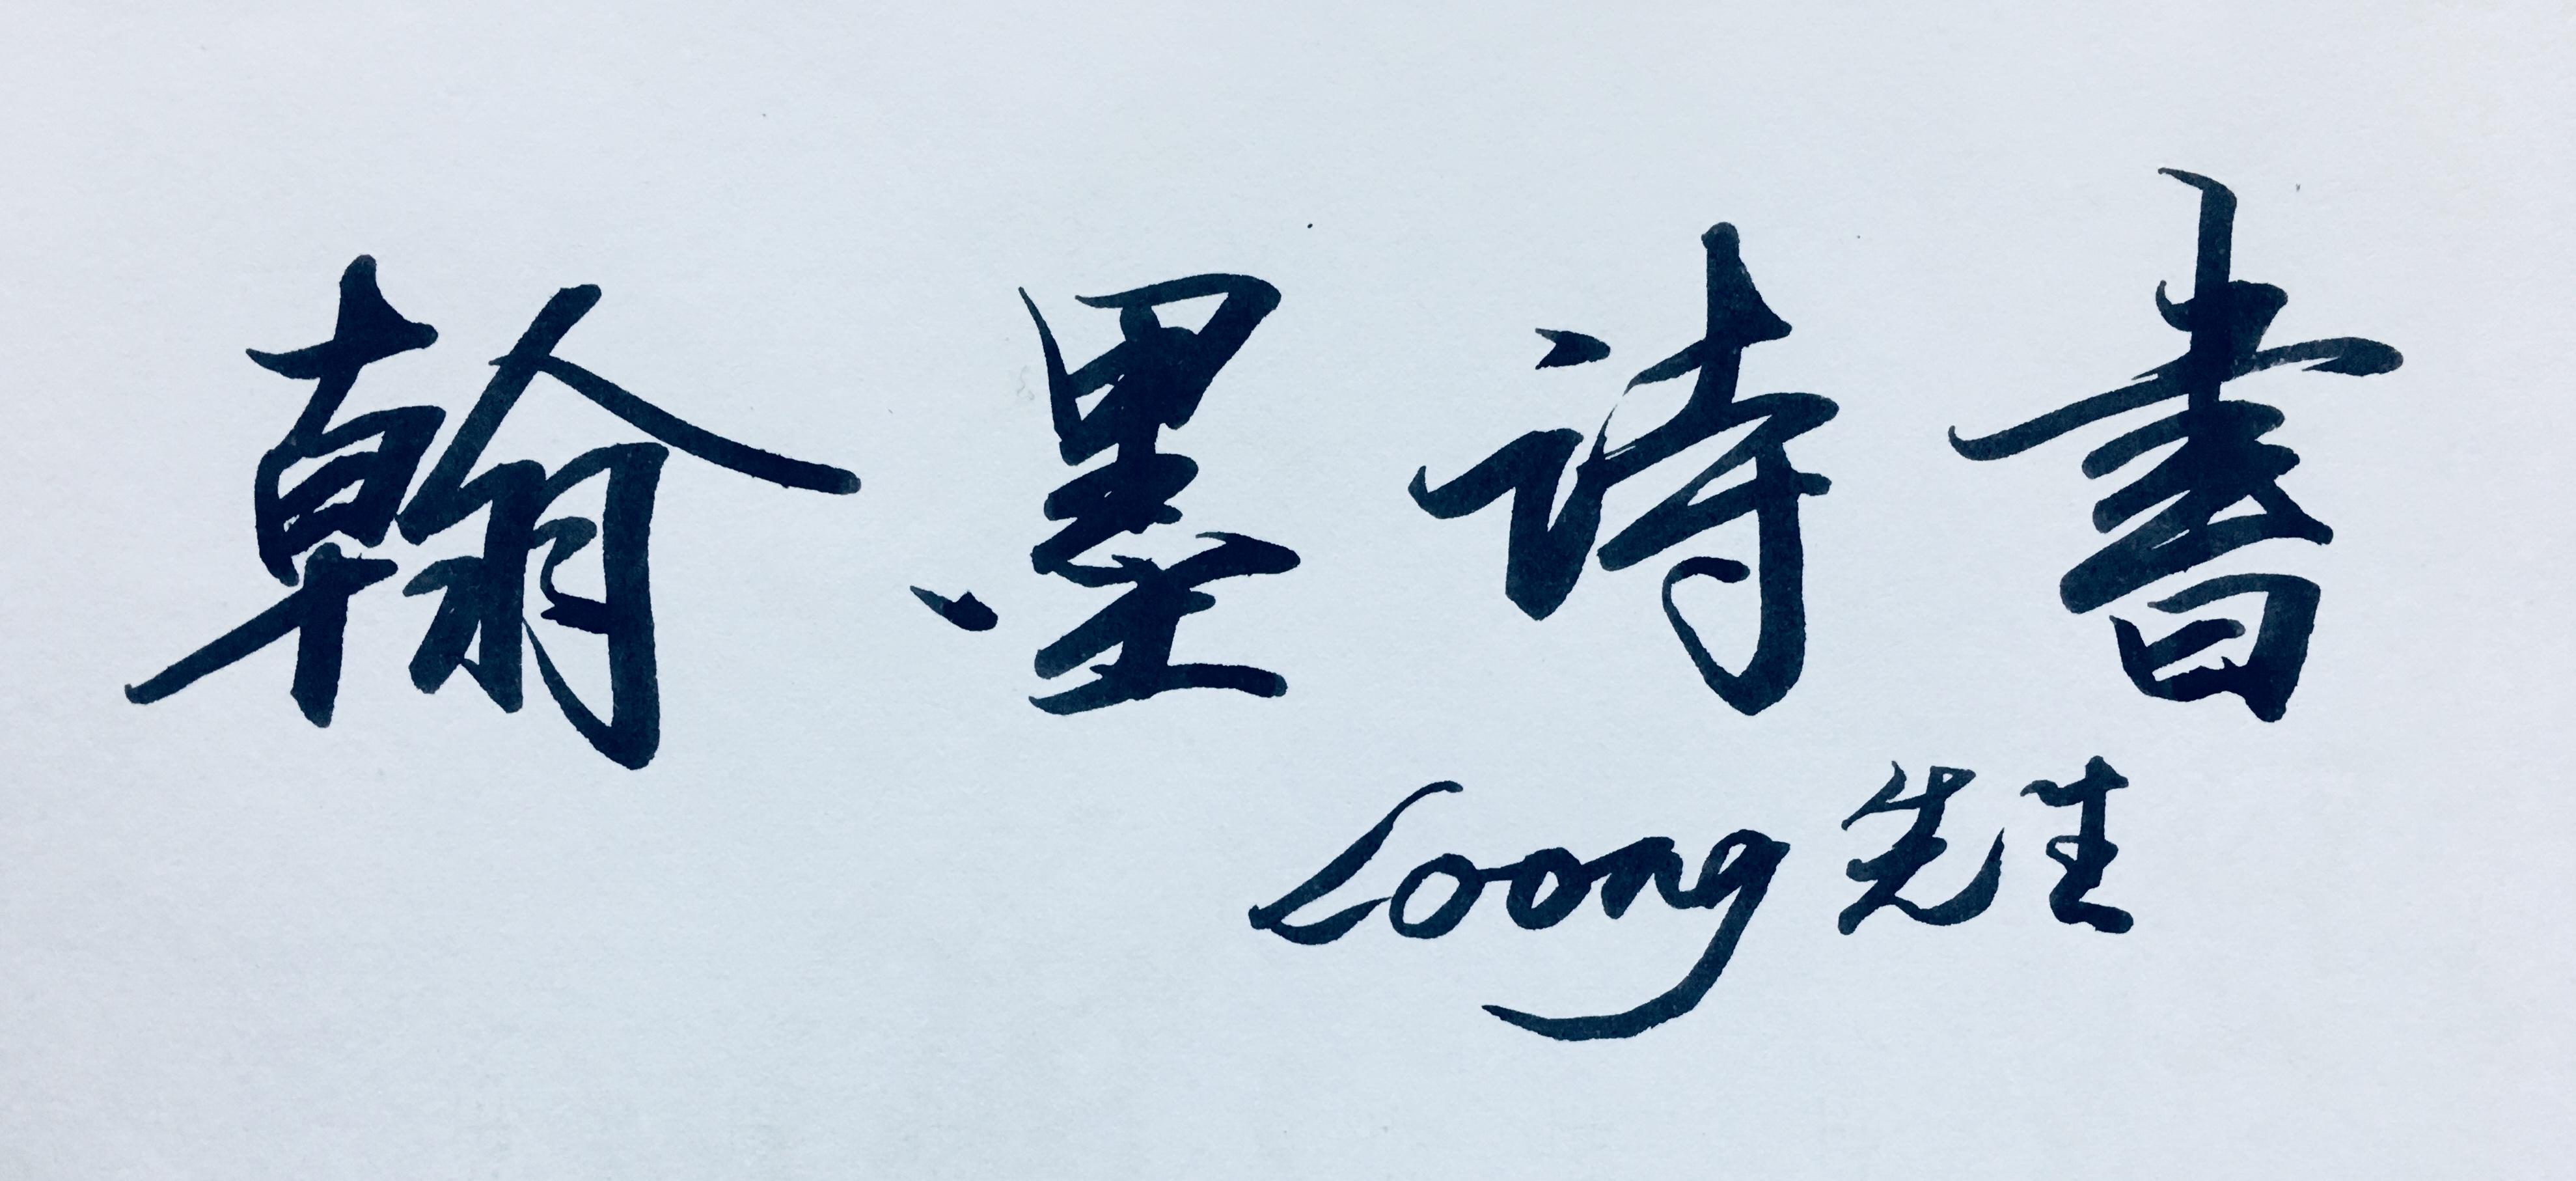 翰墨诗書
Loong先生